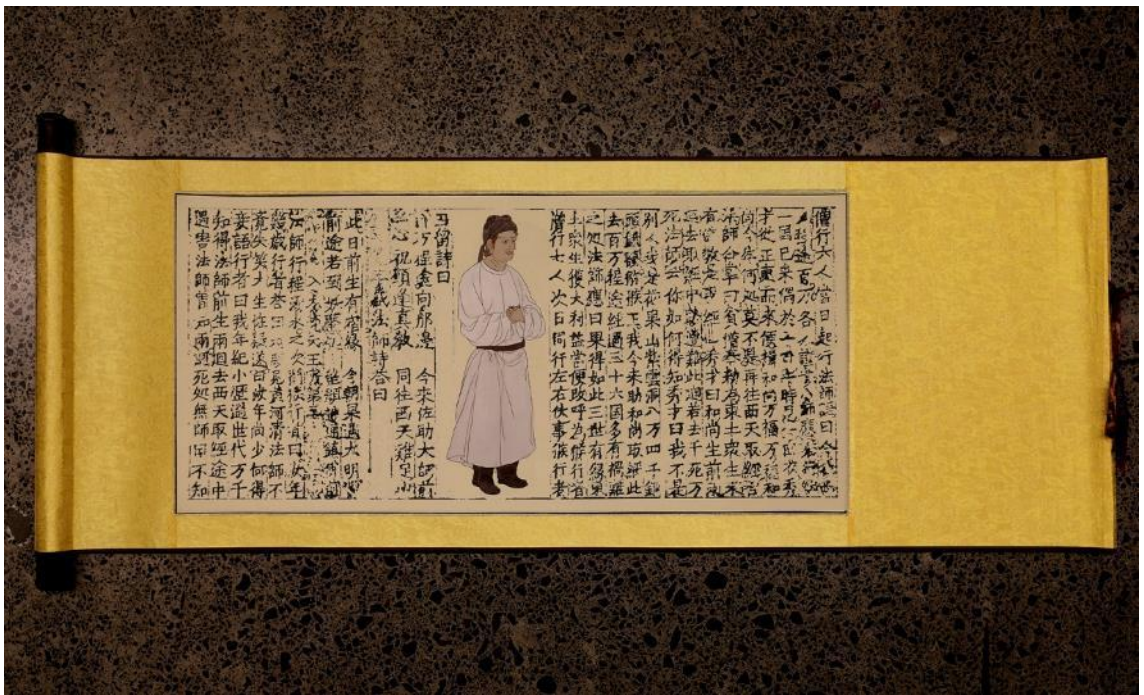 僧行六人當日起行法師語曰今往西
程途百万各人謹慎小師應
一国已来偶於一日午時見一白衣秀
才從正東而來便揖和尚万福万福和
尚今徃何処莫不是再往西天取經否
法師合掌曰貧僧奉勑為東土衆生未
有教是取經也秀才曰和尚生前兩
廻去取經中路遭難此廻若去千死万
死法師云你如何得知秀才曰我不是
別人我是花果山紫雲洞八万四千銅
頭鉄額猕猴王我今来助和尚取経此
去百万程途經過三十六国多有禍難
之処法師應曰果得如此三世有縁東
土衆生獲大利益當便改呼為猴行者
僧行七人次日同行左右伏事猴行者
乃留詩曰
百万程途向那邊　今来佐助大師前
一心祝願逢真教　同往西天雞足山
三藏法師詩答曰
此日前生有宿縁　今朝果遇大明
前途若到妖魔処　望顕神通鎮佛前
入大梵天王宮第三
法師行程湯水之次問猴行者曰汝年
幾歲行者荅曰九度見黄河清法師不
覺失笑大生怪疑遂曰汝年尚少何得
妄語行者曰我年紀小歴過世代万千
知得法師前生兩廻去西天取經途中
遇害法師曽知兩廻死処無師曰不知